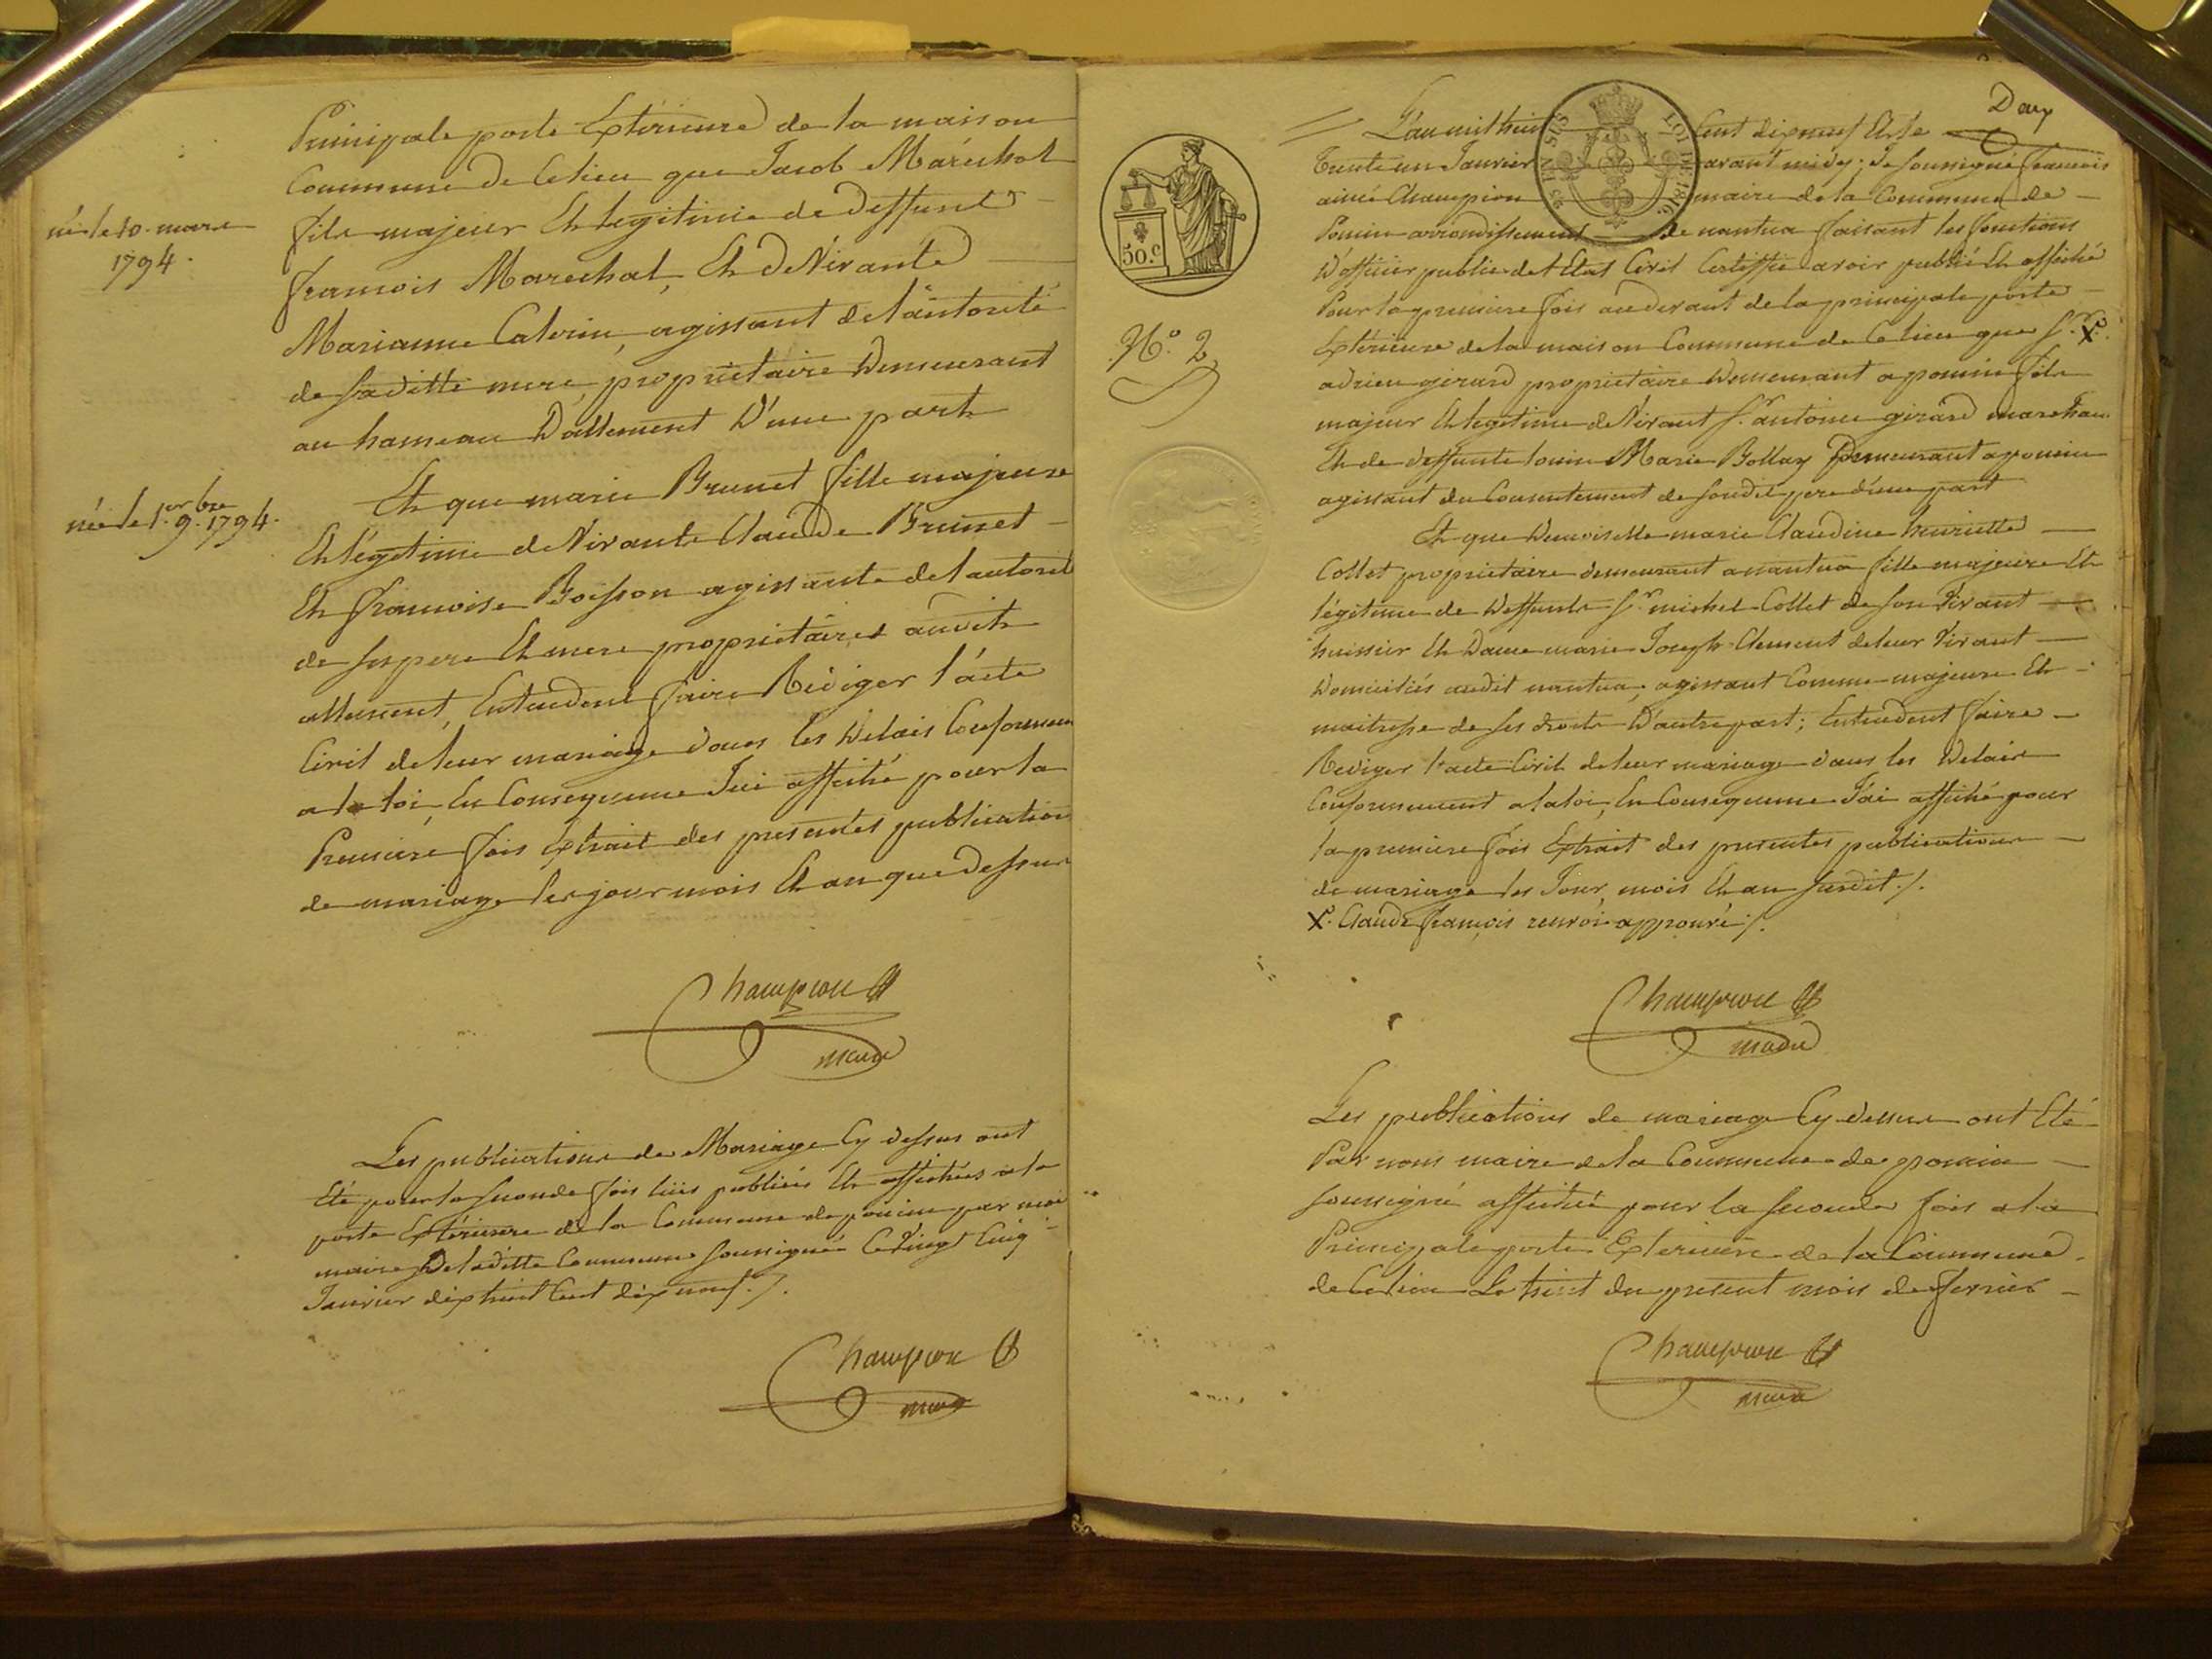 Principale porte Extérieure de la maison
Commune de Celieu que Jacob Maréchal
fils majeur Et legitime de deffunt
francois Marechal, Et de Vivante
Marianne Calorin, agissant de l'autorité
de sa ditte mere, propriétaire demeurant
au hameau D'allement D'une part
née le 10. mars
1794.
Et que marie Brunet fille majeure
Et légitime de Vivants Claude Brunet
Et francoise Boisson agissante de l'autorité
de ses pere Et mere propriétaires audit
allement, Entendent faire Rédiger l'acte
Civil de leur mariage dans les Delais Conformem
a la loi, En Consequence J'ai affiché pour la
Premiere fois Extrait des presentes publication
de mariage les jour mois Et an que dessus
née le 1.er 9.bre 1794.
Champion
maire
Les publications de Mariage Cy dessus ont
Eté pour la seconde fois lües publiées Et affichées a la
porte Extérieure de la Commune de poncin par moi
maire De la ditte Commune soussignée Ce Vingt Cinq
Janvier dix huit Cent dix neuf ./.
Champion
maire
Deux
L'an mil huit Cent dix neuf Et le
trente un Janvier avant midy; Je soussigné francois
aimé Champion maire de la Commune de
Poncin arrondissement de nantua faisant les fonctions
D'officier public de l'Etat Civil Certiffie avoir publié Et affiché
Pour la premiere fois au devant de la principale porte
Extérieure de la maison Commune de Ce lieu que S.r X
adrien girard propriétaire Demeurant a poncin fils
majeur Et legitime de Vivant S.r antoine girard marchan
Et de deffunte louise Marie Bollay Demeurant a poncin
agissant du Consentement de son dit pere d'une part
Et que Demoiselle marie Claudine henriette
Collet propriétaire demeurant a nantua fille majeure Et
légitime de Deffunts S.r michel Collet de son Vivant
huissier Et Dame marie Joseph Clement de leur Vivant
Domiciliés audit nantua, agissant Comme majeure Et
maitresse de ses droits D'autre part; Entendent faire
Rediger l'acte Civil de leur mariage dans les Delais
Conformement a la loi, En Consequence J'ai affiché pour
la premiere fois Extrait des presentes publications
de mariage les Jour, mois Et an susdit ./.
X. Claude francois renvoi approuvé ./.
50.c
N.o 2
LOI DE 1816
Champion
maire
Les publications de mariage Cy dessus ont Eté
Par nous maire de la Commune de poncin
soussigné affiché pour la seconde fois a la
Principale porte Exterieure de la Commune
de Ce lieu Le huit du present mois de fevrier
Champion
maire